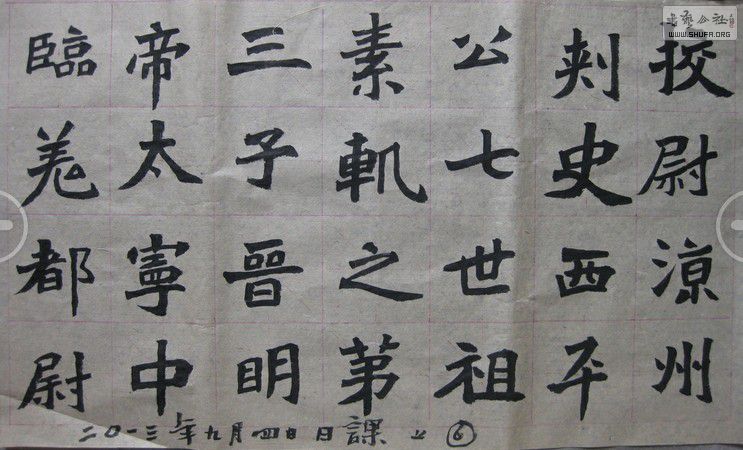 挍尉涼州
刾史西平
公七世祖
素軌之苐
三子晉眀
帝太寧中
臨羌都尉
二〇一三年九月四日日課之⑥
書藝公社
WWW.SHUFA.ORG